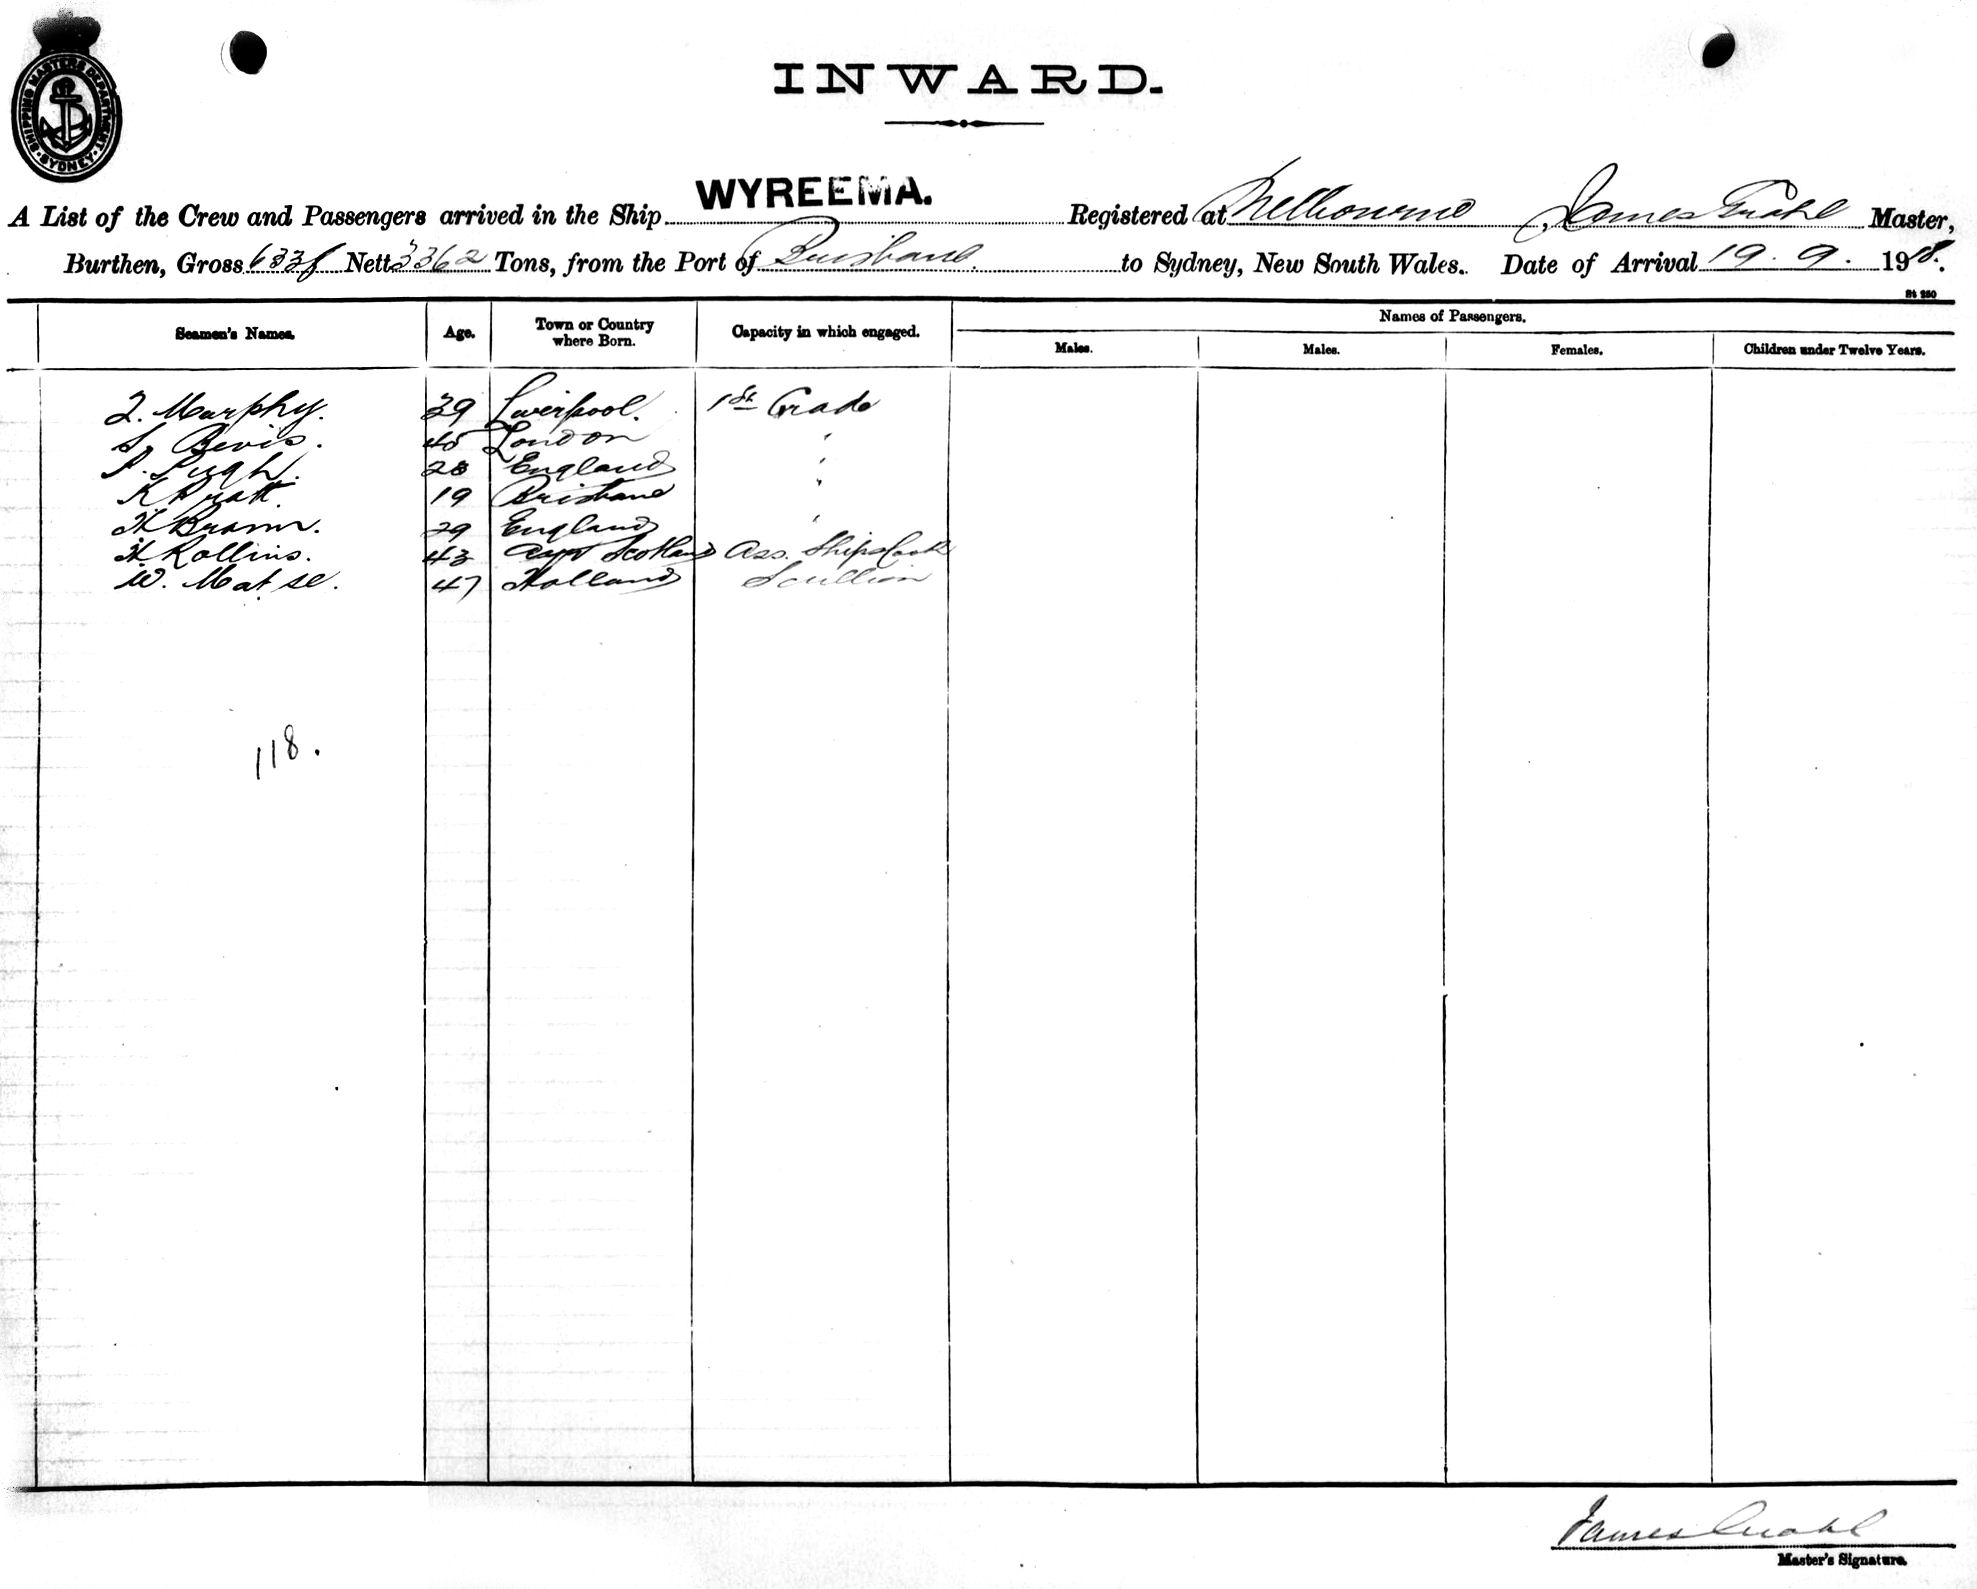 SHIPPING MASTERS DEPARTMENT SYDNEY
INWARD.
A List of the Crew and Passengers arrived in the Ship WYREEMA. Registered at Melbourne, James Master,
Burthen, Gross Nett 3362 Tons, from the Port of Brisbane to Sydney, New South Wales. Date of Arrival 19. 9. 1918.
St 250
Seamen's Names. Age. Town or Country where Born. Capacity in which engaged. Names of Passengers.
Males. Males. Females. Children under Twelve Years.
Murphy. 39 Liverpool. 1st Grade
Bevis. 45 London "
Pugh. 28 England "
K Pratt 19 Brisbane "
H Bramr. 29 England "
H Rollins. 43 Scotland Ass. Ships Cook
W. Matse. 47 Holland Scullion
118.
James
Master's Signature.